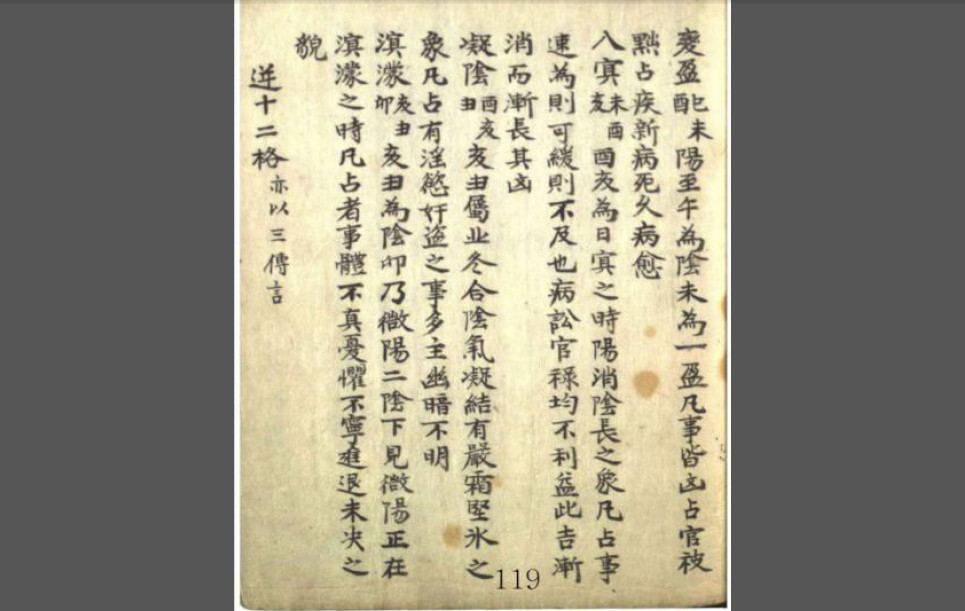 變盈巳未酉陽至午為陰未為一盈凡事皆凶占官被
黜占疾新病死久病愈
入冥未酉亥酉亥為日冥之時陽消陰長之象凡占事
速為則可緩則不及也病訟官祿均不利益此吉漸
消而漸長其凶
凝陰酉亥丑亥丑屬北冬合陰氣凝結有嚴霜堅氷之
象凡占有淫慾奸盜之事多主幽暗不明
溟濛亥丑卯亥丑為陰卯乃微陽二陰下見微陽正在
溟濛之時凡占者事體不真憂懼不寧進退未决之
貌
逆十二格亦以三傳言
119